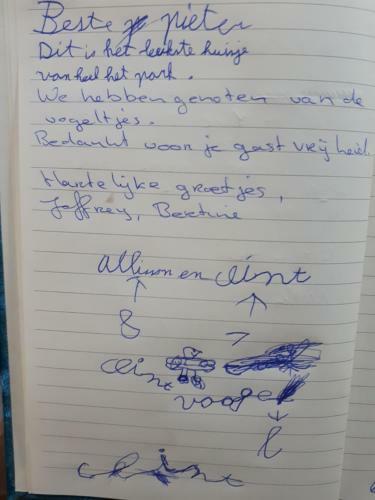 Beste pieter
Dit is het leukste huisje
van heel het park.
We hebben genoten van de
vogeltjes.
Bedankt voor je gastvrijheid.
Hartelijke groetjes,
Jeffrey, Bertine
allison en clint
8 7
clint
voogel
l
clint